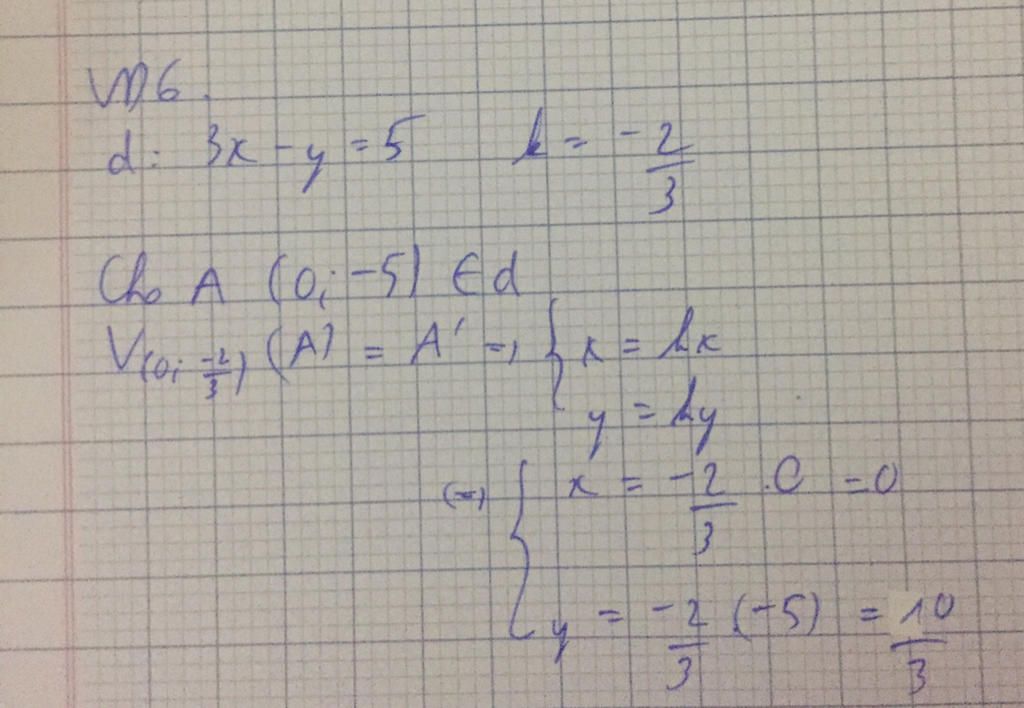 VD6.
d: 3x - y = 5 k = -2/3
Cho A (0; -5) ∈ d
V(0; -2/3) (A) = A' => { x = kx
y = ky
(=) { x = -2/3 .0 = 0
y = -2/3 (-5) = 10/3